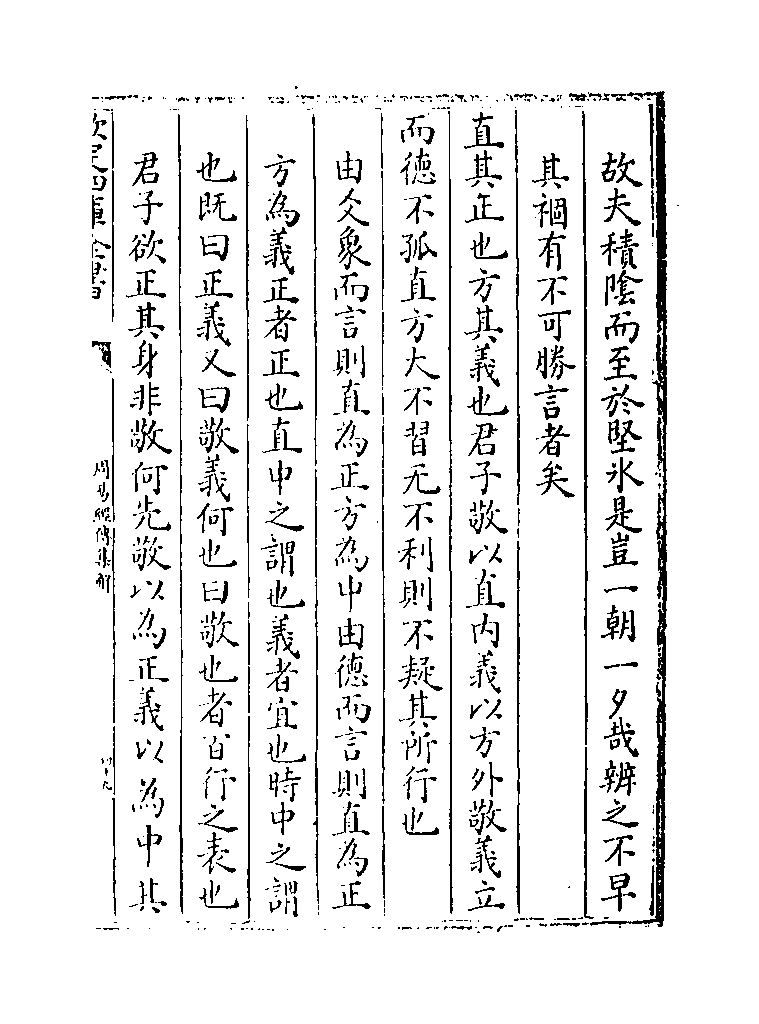 故夫積隂而至於堅氷是豈一朝一夕哉辨之不早
其禍有不可勝言者矣
直其正也方其義也君子敬以直内義以方外敬義立
而德不孤直方大不習无不利則不疑其所行也
由爻象而言則直為正方為中由德而言則直為正
方為義正者正也直中之謂也義者宜也時中之謂
也既曰正義又曰敬義何也曰敬也者百行之表也
君子欲正其身非敬何先敬以為正義以為中其
欽定四庫全書
周易經傳集解
四十九